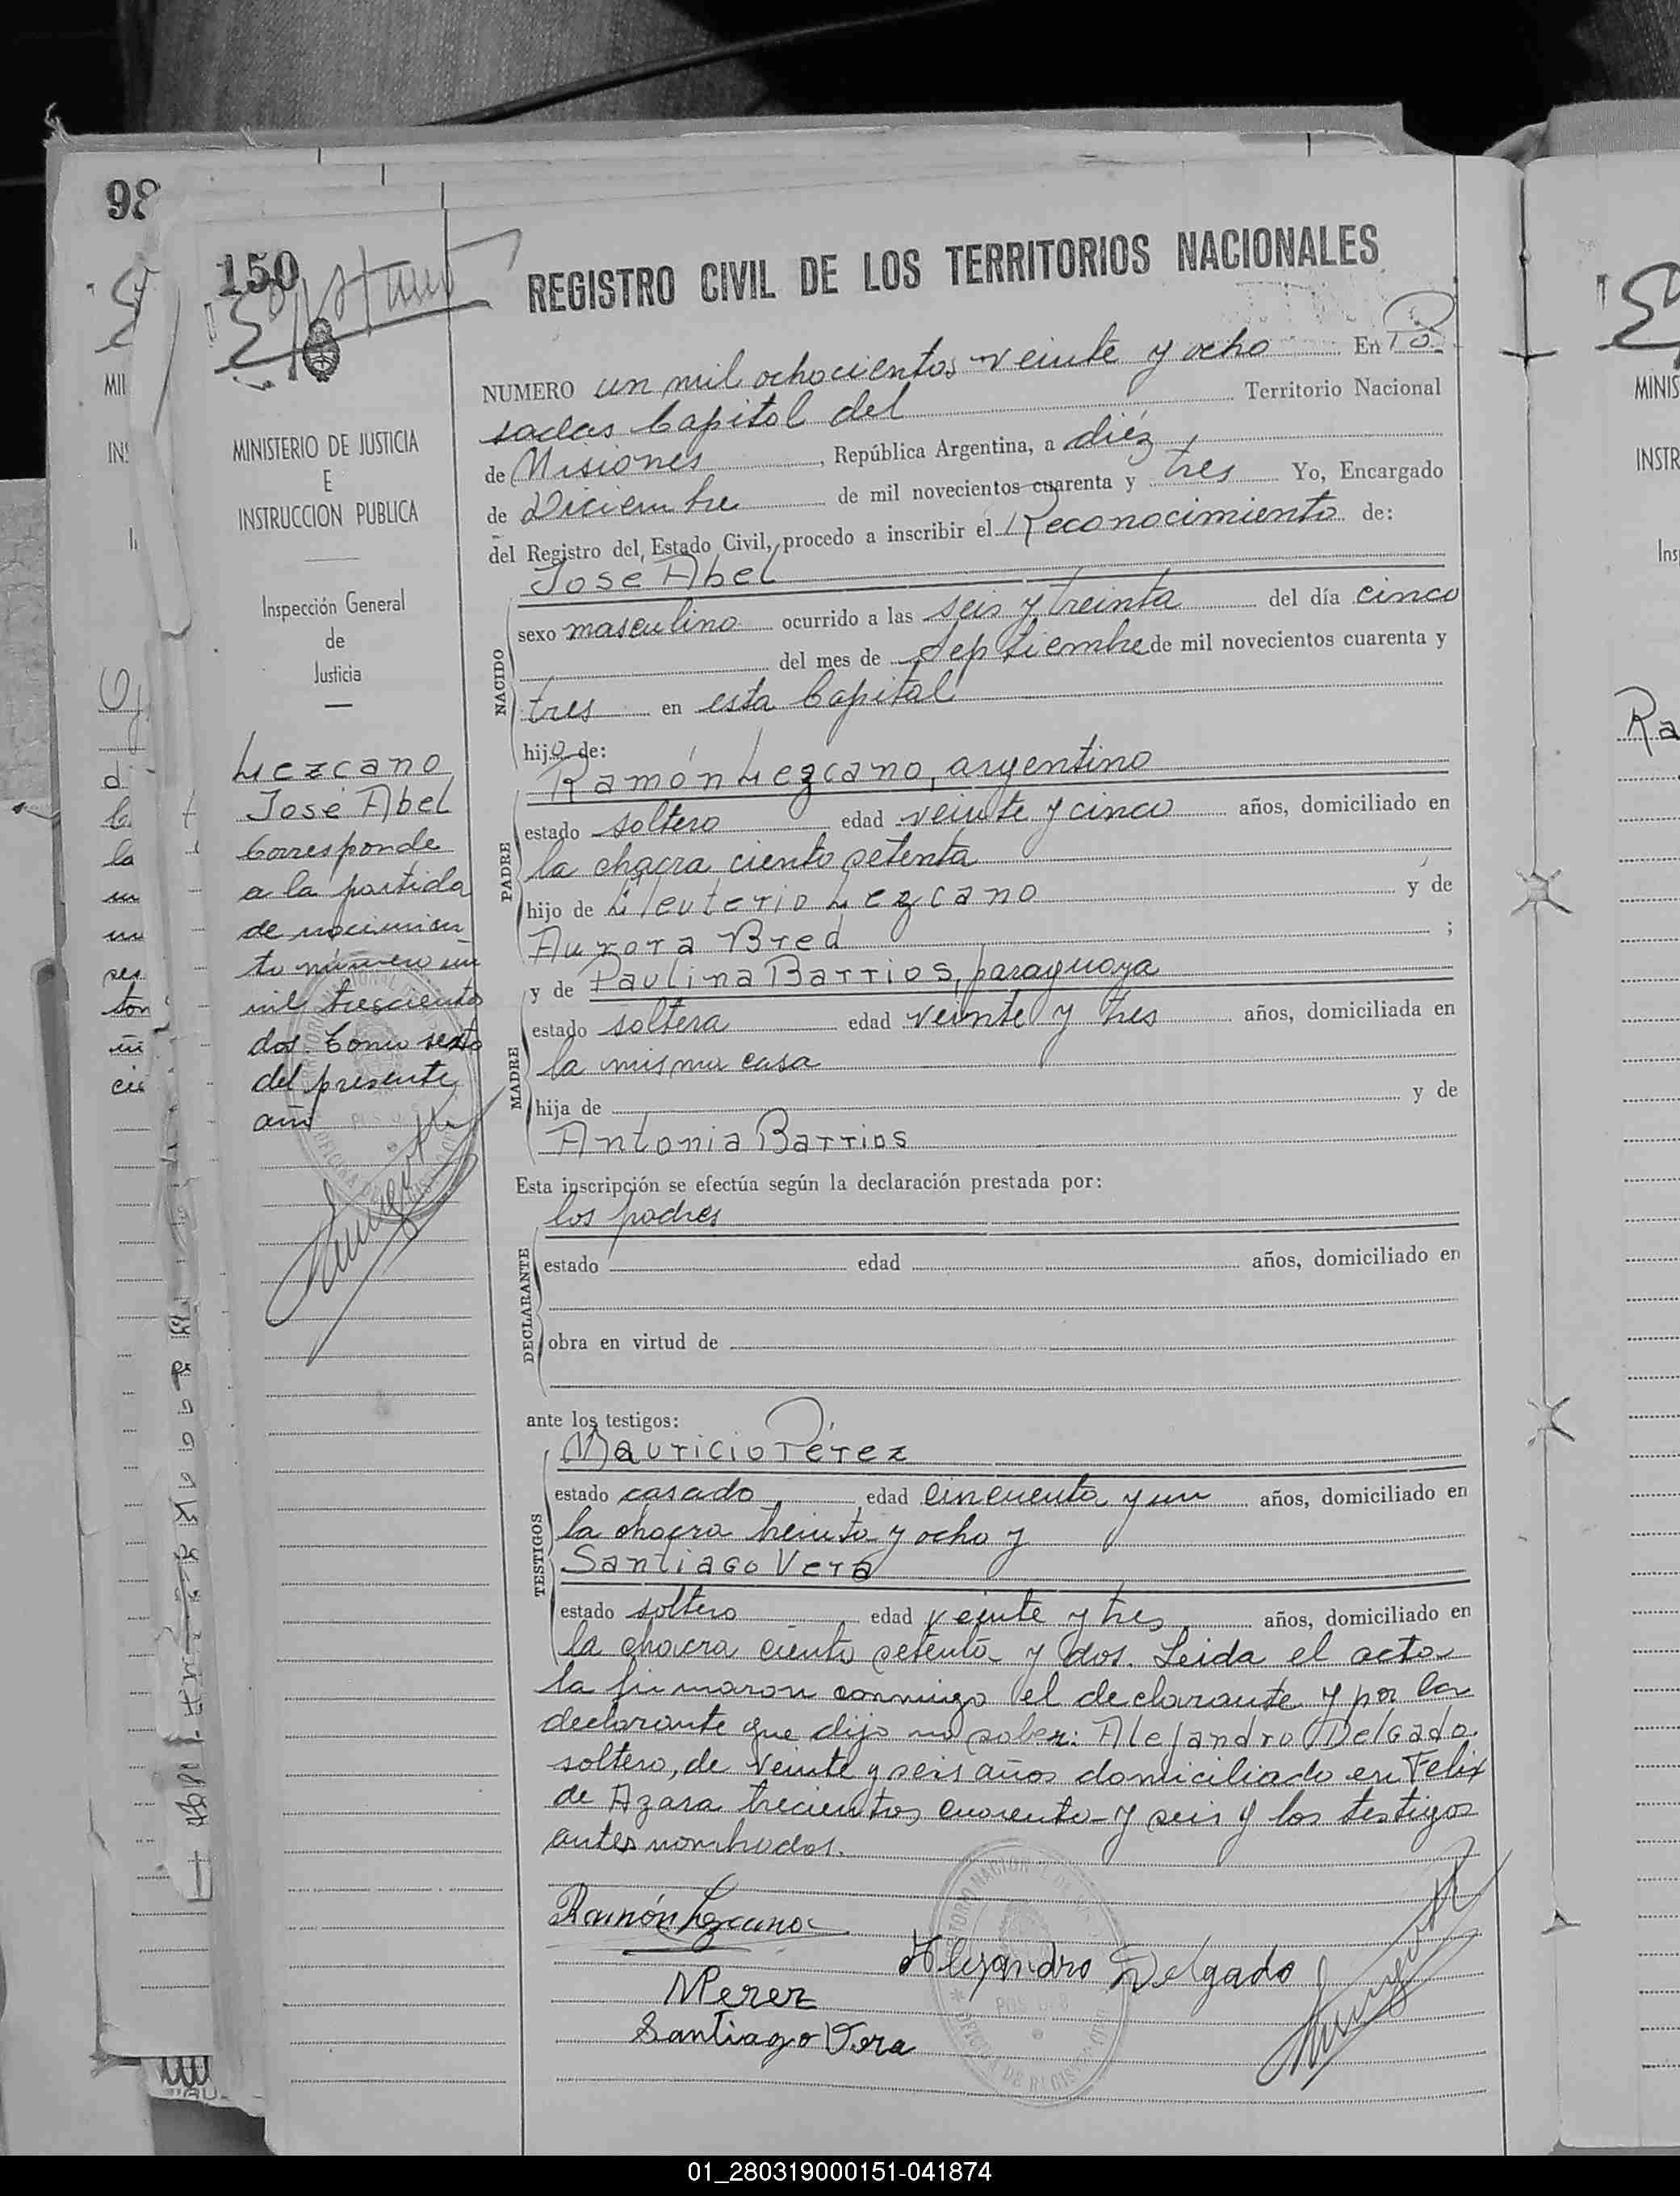 98
150
REGISTRO CIVIL DE LOS TERRITORIOS NACIONALES
NUMERO un mil ochocientos veinte y ocho En Po
sadas Capital del Territorio Nacional
de Misiones, República Argentina, a diéz
de Diciembre de mil novecientos cuarenta y tres Yo, Encargado
del Registro del Estado Civil, procedo a inscribir el Reconocimiento de:
José Abel
NACIDO
sexo masculino ocurrido a las seis y treinta del día cinco
del mes de Septiembre de mil novecientos cuarenta y
tres en esta Capital
hijo de:
Ramón Lezcano, argentino
PADRE
estado soltero edad veinte y cinco años, domiciliado en
la chacra ciento setenta
hijo de Eleuterio Lezcano y de
Aurora Bred ;
y de Paulina Barrios, paraguaya
MADRE
estado soltera edad veinte y tres años, domiciliada en
la misma casa
hija de y de
Antonia Barrios
Esta inscripción se efectúa según la declaración prestada por:
los padres
DECLARANTE
estado edad años, domiciliado en
obra en virtud de
ante los testigos:
Mauricio Pérez
TESTIGOS
estado casado edad cincuenta y un años, domiciliado en
la chacra treinta y ocho y
Santiago Vera
estado soltero edad veinte y tres años, domiciliado en
la chacra ciento setenta y dos. Leida el acta
la firmaron conmigo el declarante y por la
declarante que dijo no saber: Alejandro Delgado.
soltero, de veinte y seis años domiciliado en Felix
de Azara trecientos cuarenta y seis y los testigos
antes nombrados.
Ramón Lezcano
Alejandro Delgado
MPerez
Santiago Vera
MINISTERIO DE JUSTICIA
E
INSTRUCCION PUBLICA
Inspección General
de
Justicia
Lezcano
José Abel
Corresponde
a la partida
de nacimien
to número un
mil trescientos
dos. Tomo sexto
del presente
año
MINIS
INSTR
Ins
Ra
01_280319000151-041874